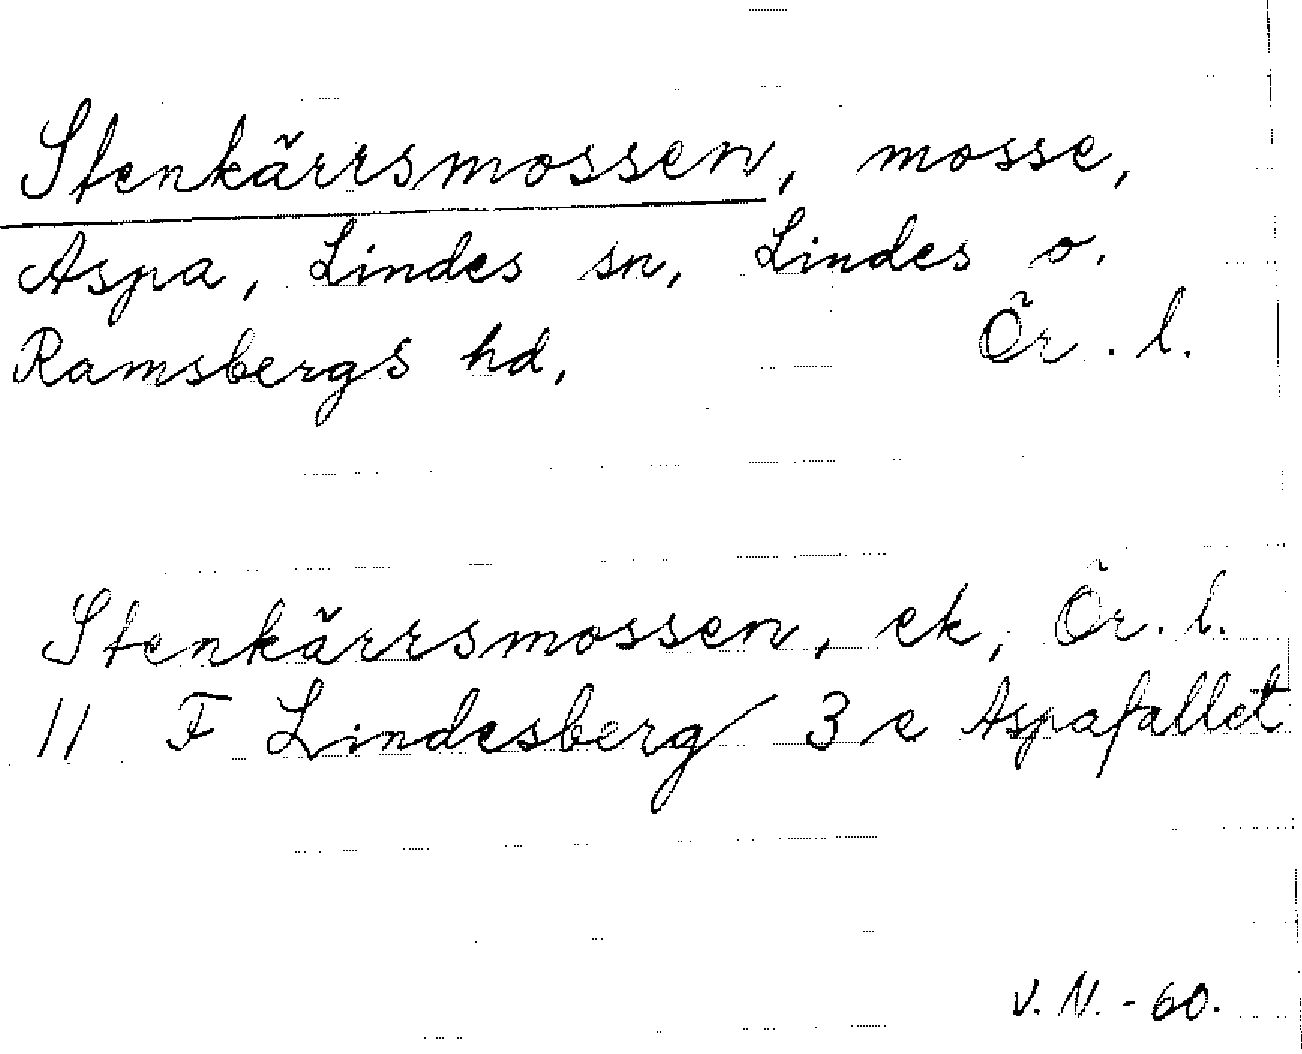 Stenkärrsmossen, mosse,
Aspa, Lindes sn, Lindes o.
Ramsbergs hd, Ör. l.
Stenkärrsmossen, ek, Ör. l.
11 F Lindesberg 3 e Aspafallet
V. N. - 60.